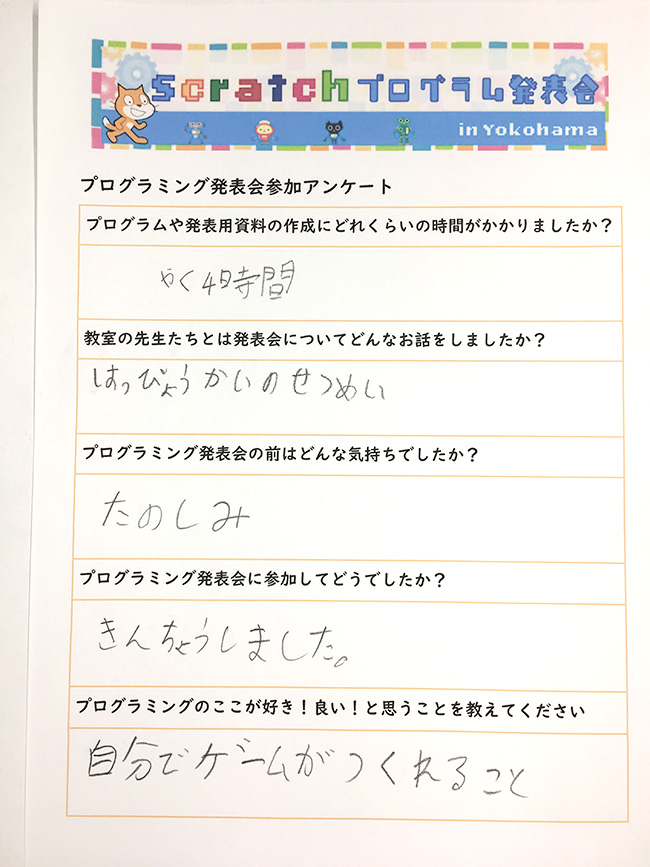 Scratchプログラム発表会
in Yokohama
プログラミング発表会参加アンケート
プログラムや発表用資料の作成にどれくらいの時間がかかりましたか？
やく4時間
教室の先生たちとは発表会についてどんなお話をしましたか？
はっぴょうかいのせつめい
プログラミング発表会の前はどんな気持ちでしたか？
たのしみ
プログラミング発表会に参加してどうでしたか？
きんちょうしました。
プログラミングのここが好き！良い！と思うことを教えてください
自分でゲームがつくれること